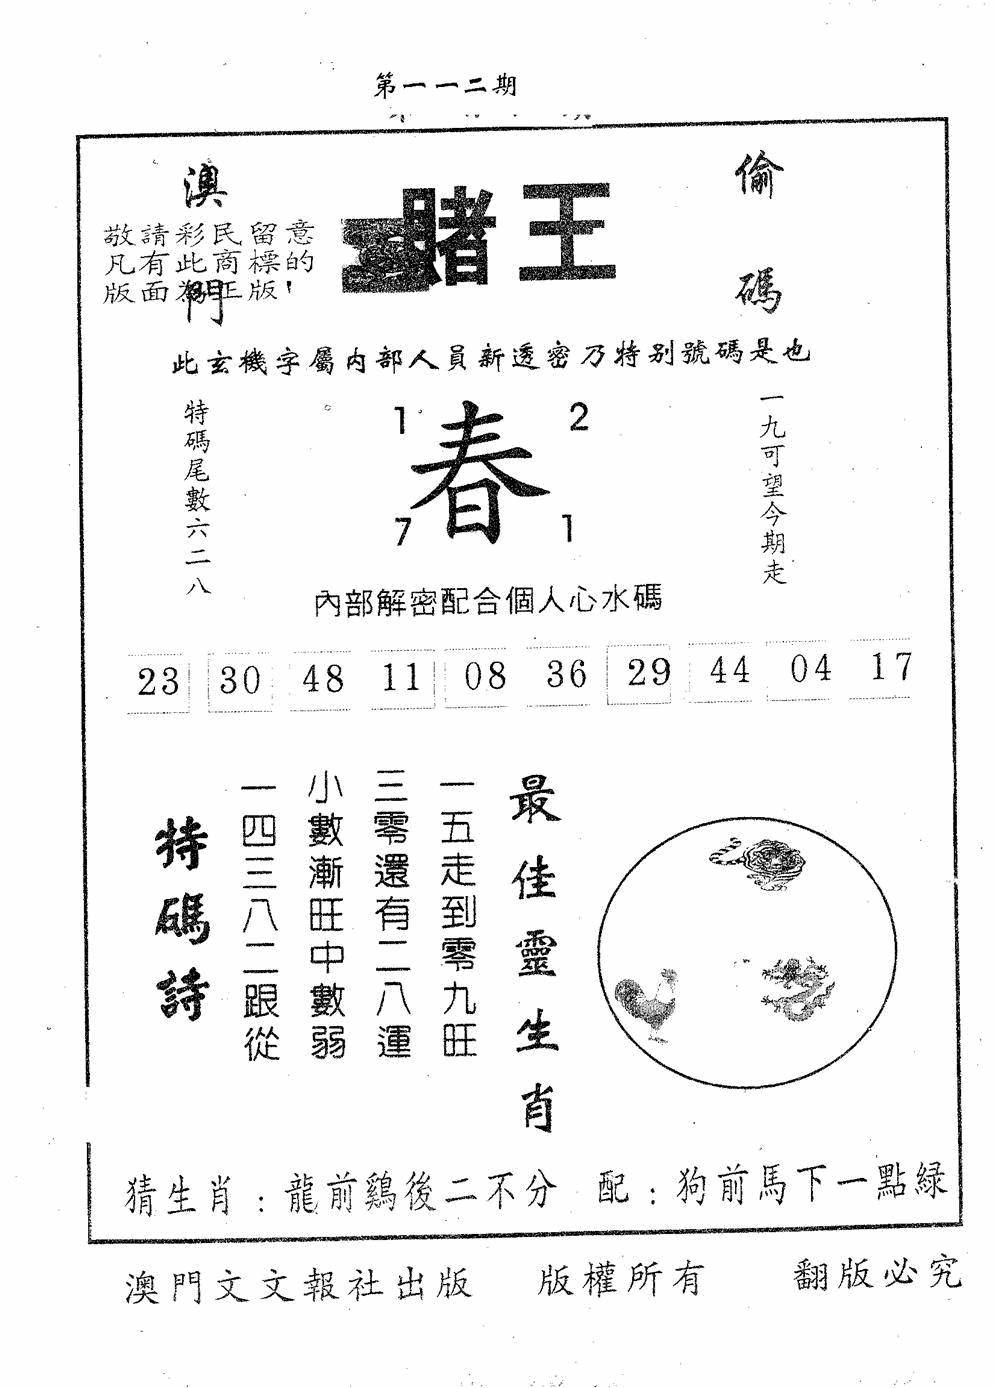 第一一二期
澳門
賭王
偷碼
敬請彩民留意
凡有此商標的
版面為正版!
此玄機字屬内部人員新透密乃特别號碼是也
特碼尾數六二八
1 2
春
7 1
一九可望今期走
內部解密配合個人心水碼
23 30 48 11 08 36 29 44 04 17
最佳靈生肖
一五走到零九旺
三零還有二八運
小數漸旺中數弱
一四三八二跟從
特碼詩
猜生肖：龍前鷄後二不分 配：狗前馬下一點緑
澳門文文報社出版 版權所有 翻版必究